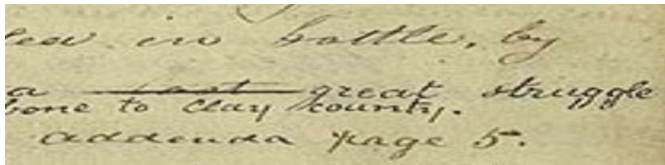 in battle, by
a last great struggle
bone to Clay County.
addenda page 5.